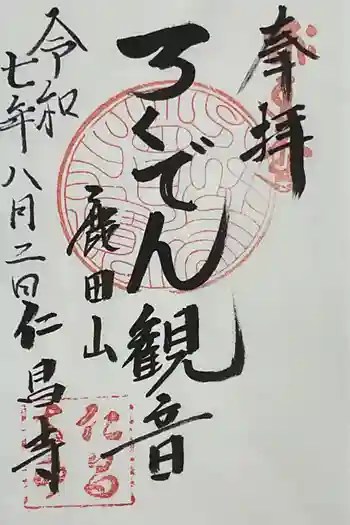 奉拝
ろくでん観音
鹿田山
令和
七年八月二日仁昌寺
仁昌